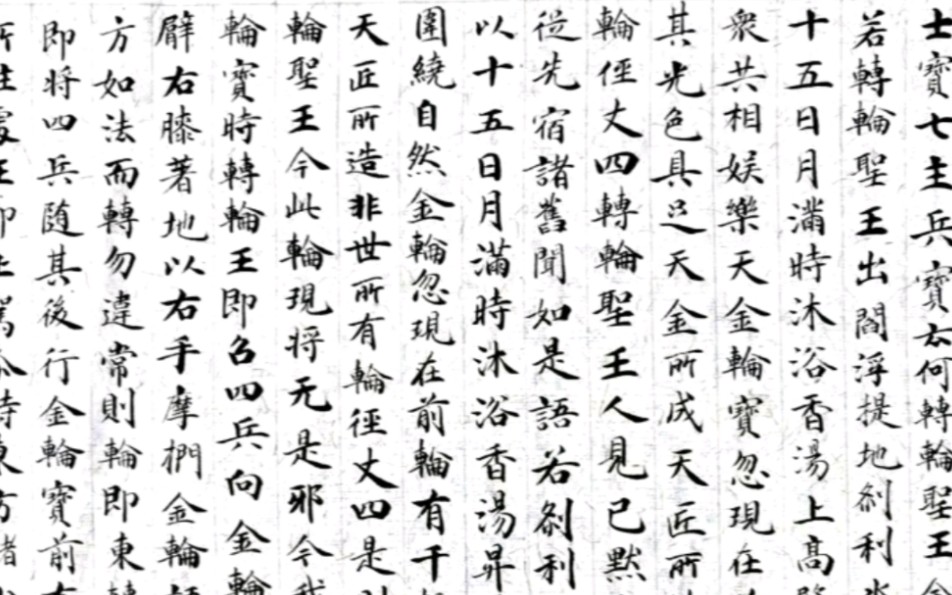 士寶七主兵寶云何轉輪聖王
若轉輪聖王出閻浮提地剎利
十五日月滿時沐浴香湯上高
衆共相娛樂天金輪寶忽現在
其光色具足天金所成天匠所
輪徑丈四轉輪聖王人見已默
從先宿諸舊聞如是語若剎利
以十五日月滿時沐浴香湯昇
圍繞自然金輪忽現在前輪有千
天匠所造非世所有輪徑丈四是
輪聖王今此輪現將无是邪今我
輪寶時轉輪王即召四兵向金輪
臂右膝著地以右手摩捫金輪語
方如法而轉勿違常則輪即東轉
即將四兵随其後行金輪寶前有
所住處王即止駕尒時東方諸